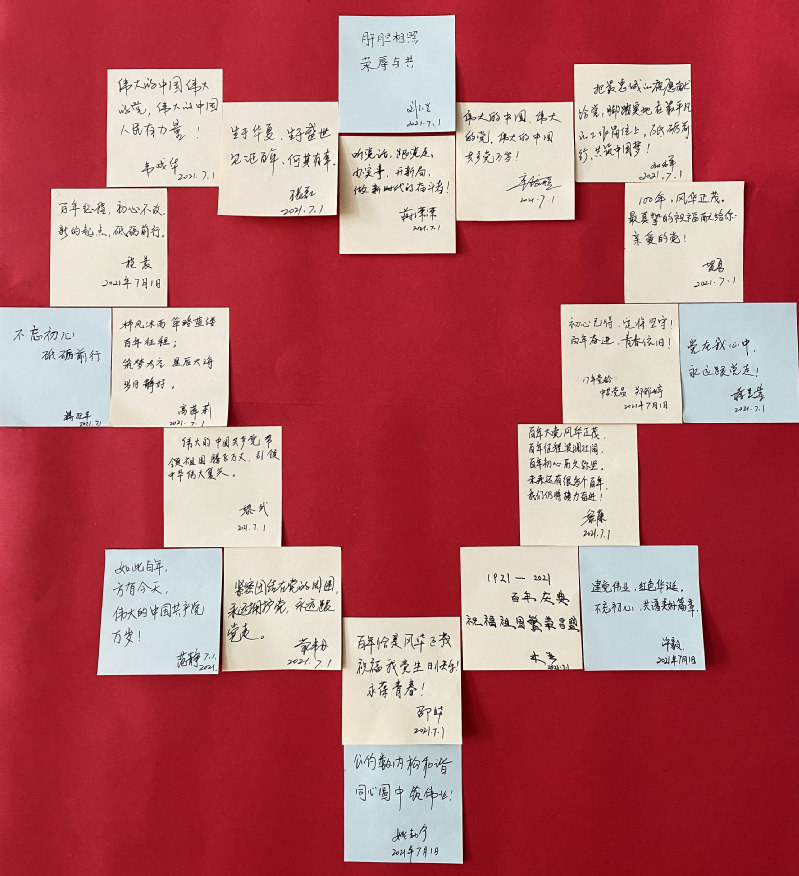 肝胆相照
荣辱与共
2021.7.1
伟大的中国伟大
的党，伟大的中国
人民有力量！
2021.7.1
生于华夏、生于盛世
见证百年、何其有幸
2021.7.1
听党话，跟党走，
办实事，开新局，
做新时代的奋斗者！
2021.7.1
伟大的中国，伟大
的党，伟大的中国
共产党万岁！
2021.7.1
把最忠诚的祝愿献
给党，脚踏实地在最平凡
的工作岗位上，砥砺前
行，共筑中国梦！
2021.7.1
百年征程，初心不改，
新的起点，砥砺前行。
2021年7月1日
100年，风华正茂。
最真挚的祝福献给你
亲爱的党！
2021.7.1
不忘初心
砥砺前行
2021.7.1
栉风沐雨 筚路蓝缕
百年征程；
筑梦为言 星辰大海
岁月静好。
2021.7.1
初心已特，定将坚守！
百年奋进，青春依旧！
17年党龄
中共党员
2021年7月1日
党在我心中，
永远跟党走！
2021.7.1
伟大的中国共产党带
领祖国腾飞万丈，引领
中华伟大复兴。
2021.7.1
百年大党风华正茂，
百年征程波澜壮阔，
百年初心历久弥坚。
未来还有很多个百年，
我们仍将接力奋进！
2021.7.1
如此百年，
方有今天，
伟大的中国共产党
万岁！
范静 7.1.
2021.
紧密团结在党的周围，
永远拥护党，永远跟
党走。
2021.7.1
1921—2021
百年庆典
祝福祖国繁荣昌盛
2021.7.1
建党伟业，红色华诞，
不忘初心，共谱美好篇章。
许毅
2021年7月1日
百年恰是风华正茂
祝福我党生日快乐！
永葆青春！
2021.7.1
公约数内构和谐
同心圆中筑伟业！
2021年7月1日